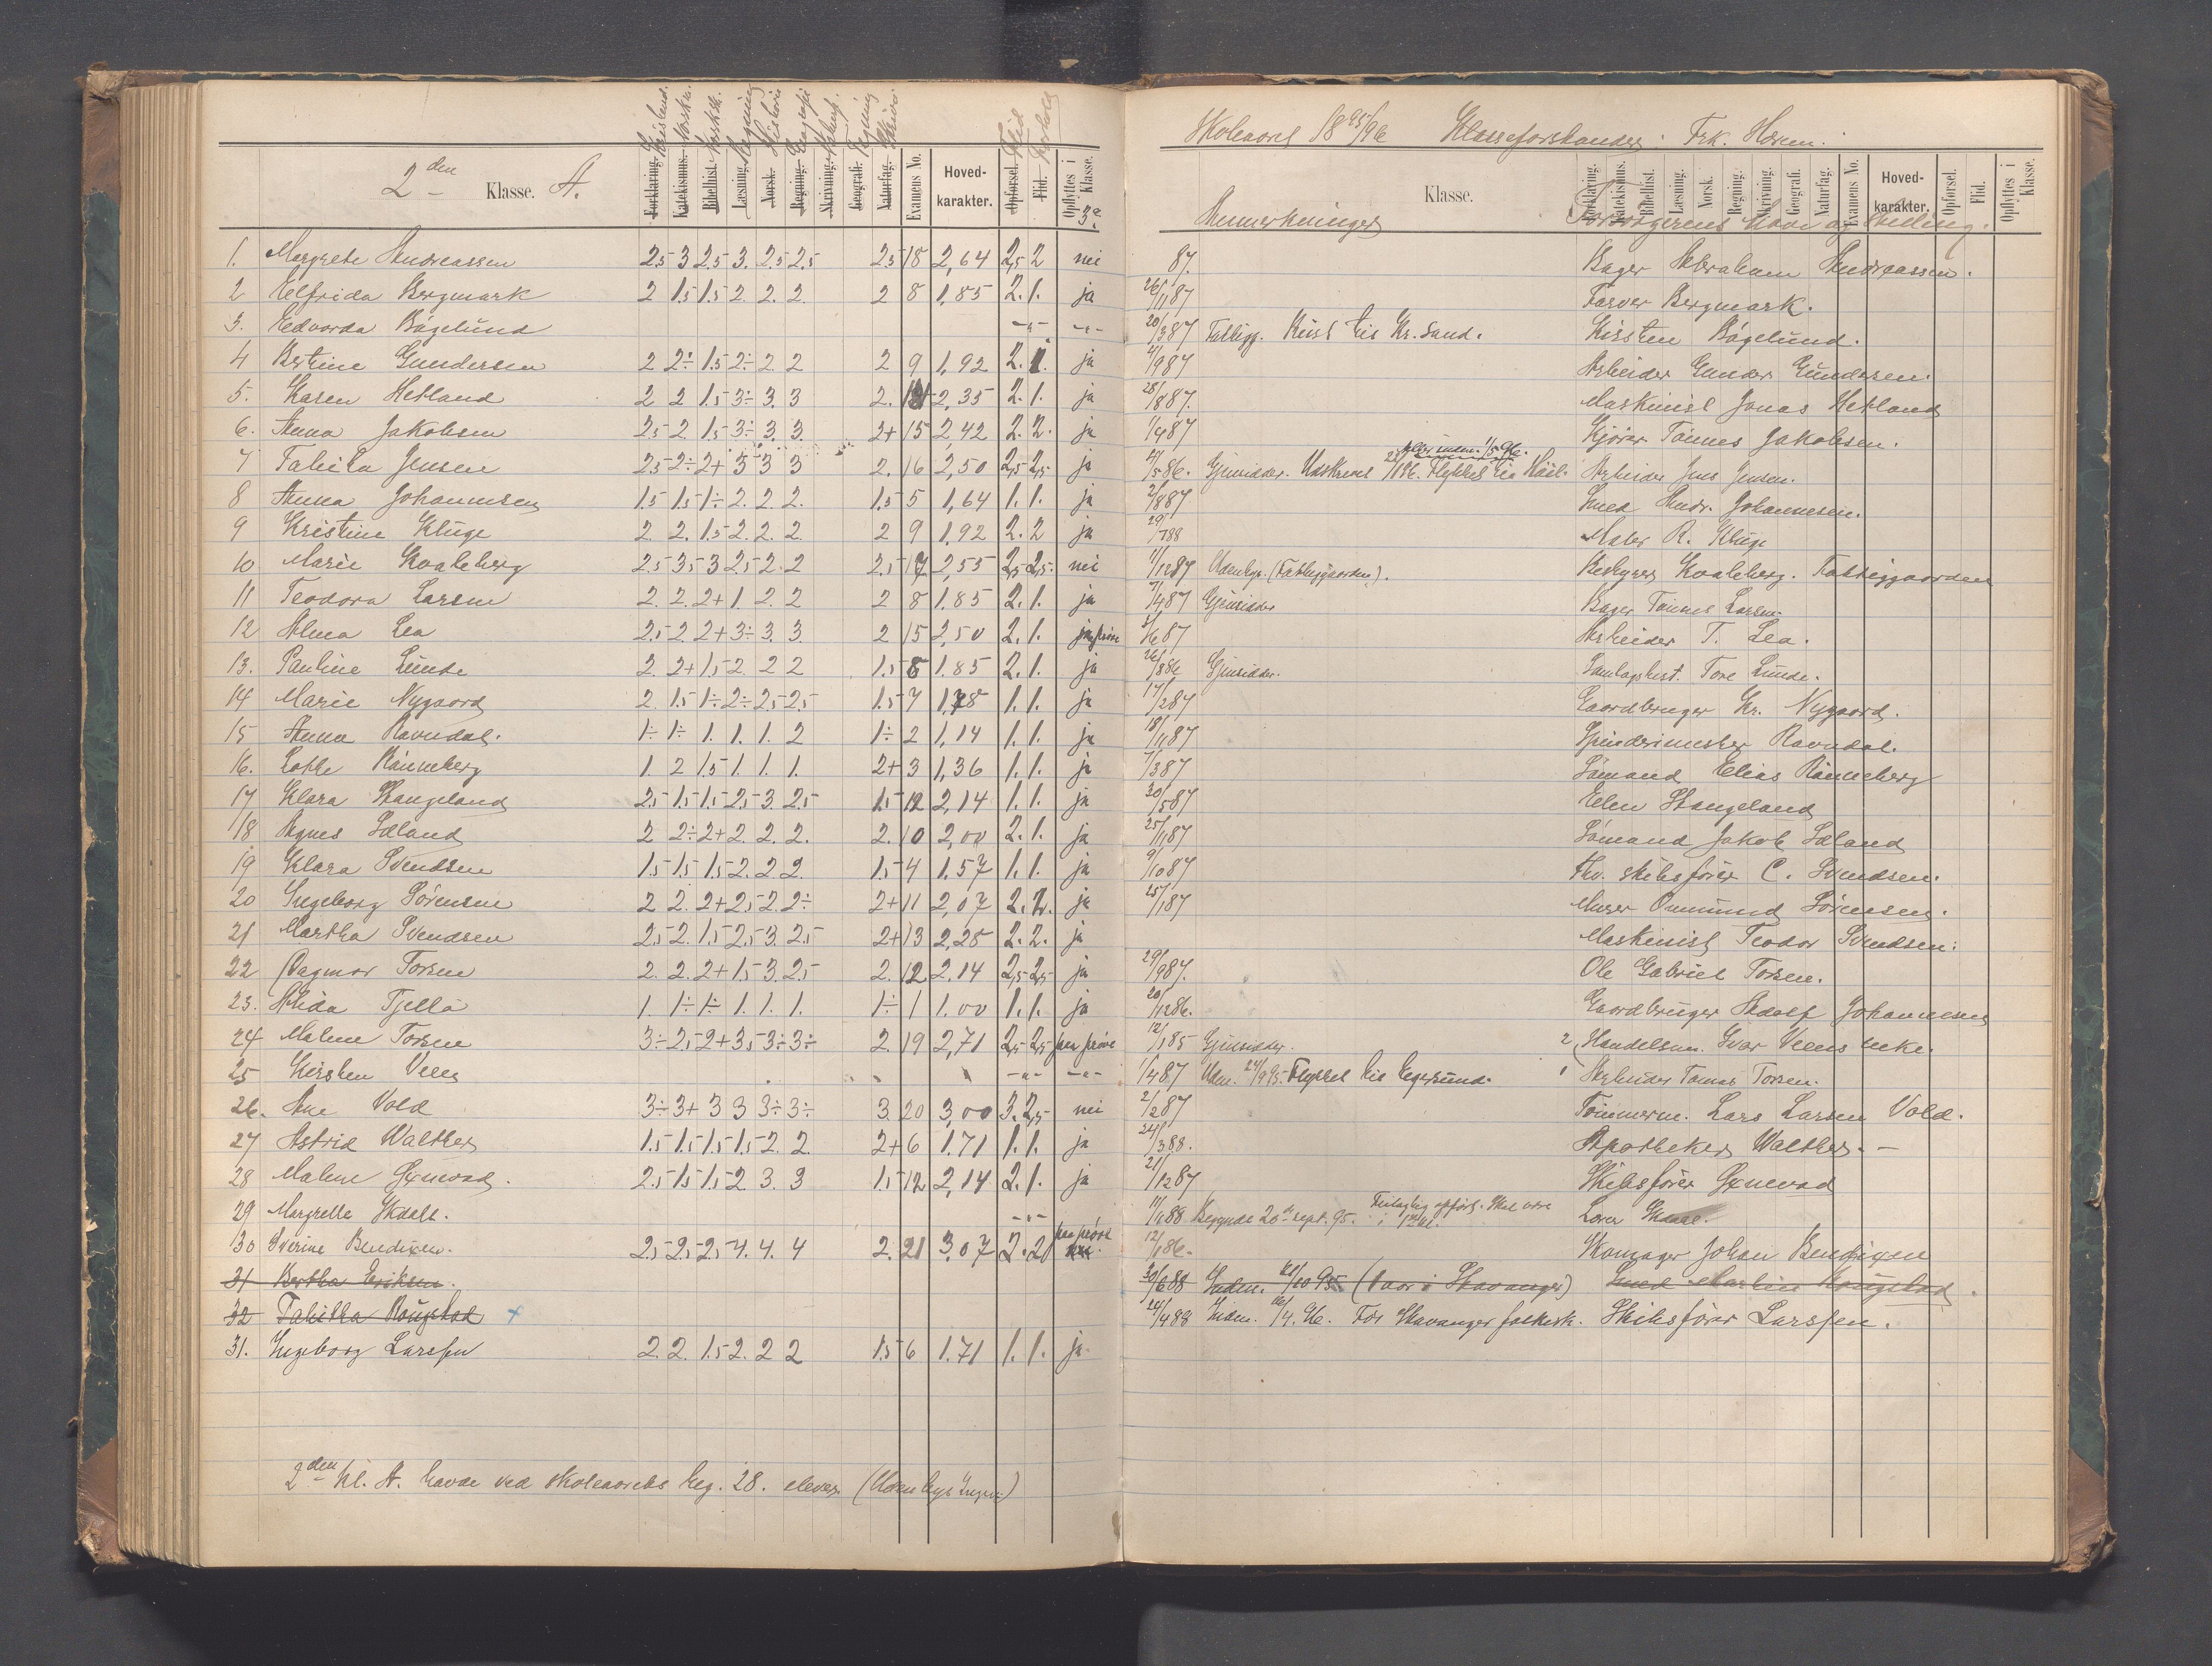 2den Klasse. A.
Forklaring. Katekismus. Bibelhist. Læsning. Norsk. Regning. Skrivning. Geografi. Naturfag. Examens No. Hoved-karakter. Opførsel. Flid. Opflyttes i 3e Klasse.
1. Margrete Andreassen 2,5 3 2,5 3. 2,5 2,5 2,5 18 2,64 2,5 2 nei
2 Elfrida Bergmark 2 1,5 1,5 2. 2. 2. 2 8 1,85 2. 1. ja
3. Edvarda Bøgelund -"- -"-
4 Bertine Gundersen 2 2÷ 1,5 2÷ 2 2 2 9 1,92 2. 1. ja
5. Karen Hetland 2 2 1,5 3÷ 3. 3 2. 14 2,35 2. 1. ja
6. Anna Jakobsen 2,5 2. 1,5 3÷ 3. 3. 2+ 15 2,42 2. 2. ja
7 Tabita Jensen 2,5 2÷ 2+ 3 3 3 2. 16 2,50 2,5 2,5 ja
8 Anna Johannesen 1,5 1,5 1÷ 2. 2. 2. 1,5 5 1,64 1. 1. ja
9 Kristine Kluge 2. 2. 1,5 2. 2. 2. 2 9 1,92 2. 2 ja
10 Marie Kvaleberg 2,5 3,5 3 2,5 2. 2 2,5 17 2,55 2,5 2,5 nei
11 Teodora Larsen 2. 2. 2+ 1. 2. 2 2 8 1,85 2. 1. ja
12 Alma Lea 2,5 2. 2+ 3÷ 3. 3. 2 15 2,50 2. 1. ja prøve
13. Pauline Lunde 2. 2+ 1,5 2 2 2 1,5 8 1.85 2. 1. ja
14 Marie Nygaard 2. 1,5 1÷ 2÷ 2,5 2,5 1,5 7 1,78 1. 1. ja
15 Anna Ravndal. 1÷ 1÷ 1. 1. 1. 2 1÷ 2 1,14 1. 1. ja
16. Lotte Rønneberg 1. 2 1,5 1. 1. 1. 2+ 3 1,36 1. 1. ja
17 Klara Stangeland 2,5 1,5 1,5 2,5 3. 2,5 1,5 12 2,14 1. 1. ja
18 Agnes Sæland 2 2÷ 2+ 2. 2. 2. 2. 10 2,00 2. 1. ja
19 Klara Svendsen 1,5 1,5 1,5 2. 2. 2. 1,5 4 1,57 1. 1. ja
20 Ingeborg Sørensen 2 2. 2+ 2,5 2. 2÷ 2+ 11 2,07 2. 2. ja
21 Martha Svendsen 2,5 2. 1,5 2,5 3. 2,5 2+ 13 2,28 2. 2. ja
22 Dagmar Torsen 2. 2. 2+ 1,5 3. 2,5 2. 12 2.14 2,5 2,5 ja
23. Alida Tjellå 1. 1÷ 1÷ 1. 1. 1. 1÷ 1 1.00 1. 1. ja
24 Malene Torsen 3÷ 2,5 2+ 3,5 3÷ 3÷ 2. 19 2,71 2,5 2,5 paa prøve
25 Kirsten Veen -"- -"-
26. Ane Vold 3÷ 3+ 3 3 3÷ 3÷ 3 20 3,00 3. 2,5 nei
27 Astrid Walther 1,5 1,5 1,5 1,5 2. 2. 2+ 6 1.71 1. 1. ja
28 Malene Gxnevad. 2,5 1,5 1,5 2. 3. 3 1,5 12 2,14 2. 1. ja
29 Margrethe Skaale. -"-
30 Sverine Bendixen. 2,5 2,5 2,5 4. 4. 4 2. 21 3.07 2. 2 paa prøve
31 Bertha Eriksen.
32 Tabitha Rougstad +
31. Ingeborg Larssen 2. 2. 1,5 2. 2 2 1,5 6 1.71 1. 1. ja
2den kl. A. havde ved skoleaarets beg. 28. elever.
Skoleaaret 1895/96 Klasseforstander: Frk.
Anmerkninger Klasse. Forsørgerens Navn og Stilling.
Forklaring. Katekismus. Bibelhist. Læsning. Norsk. Regning. Skrivning. Geografi. Naturfag. Examens No. Hoved-karakter. Opførsel. Flid. Opflyttes i Klasse.
87. Bager Abraham Andreassen.
26/11 87 Farver Bergmark.
20/3 87 Fattigg. Reist til Kr.sand. Kirsten Bøgelund.
4/9 87 Arbeider Gunder Gundersen.
28/8 87. Maskinist Jonas Hetland
1/4 87 Kjører Tønnes Jakobsen.
4/5 86. Gjensidder. Udskrevet Flyttet til Arbeider Jens Jensen.
2/8 87 Smed Andr. Johannesen.
29/7 88 Maler R. Kluge
1/12 87 Udenbys. (Fattiggaarden). Bestyrer Kvaleberg. Fattiggaarden
7/4 87 Gjensidder Bager Tønnes Larsen.
5/6 87 Arbeider T. Lea.
26/8 86 Gjensidder. Samlagsbest. Tore Lunde.
17/2 87 Gaardbruger Kr. Nygaard.
18/11 87 Spinderimester Ravndal.
7/3 87 Sømand Elias Rønneberg
30/5 87 Elen Stangeland
25/11 87 Sømand Jakob Sæland
9/10 87 Fhv. skibsfører C. Svendsen.
25/1 87 Murer Ommund Sørensen.
Maskinist Teodor Svendsen.
29/9 87. Ole Gabriel Torsen.
20/12 86. Gaardbruger Adolf Johannesen
12/1 85 Gjensidder. 2, Handelsm. Ivar Veens enke.
1/4 87 Udm. 24/9 95. Flyttet til Egersund. 1 Arbeider Tomas Torsen.
2/2 87 Tømmerm. Lars Larsen Vold.
24/3 88. Apotheker Walther. —
21/12 87 Skibsfører Gxnevad
11/1 88 Begyndt 20de sept. 95. Feilagtig opført. Skal være i 1ste kl. Lærer Skaale.
12/1 86. Skomager Johan Bendixen
30/6 88 Indm. 10 95 (Var i Stavanger) Smed Martin Rougstad
24/4 88 Indm. 4. 96. Før Stavanger folkesk. Skibsfører Larssen.